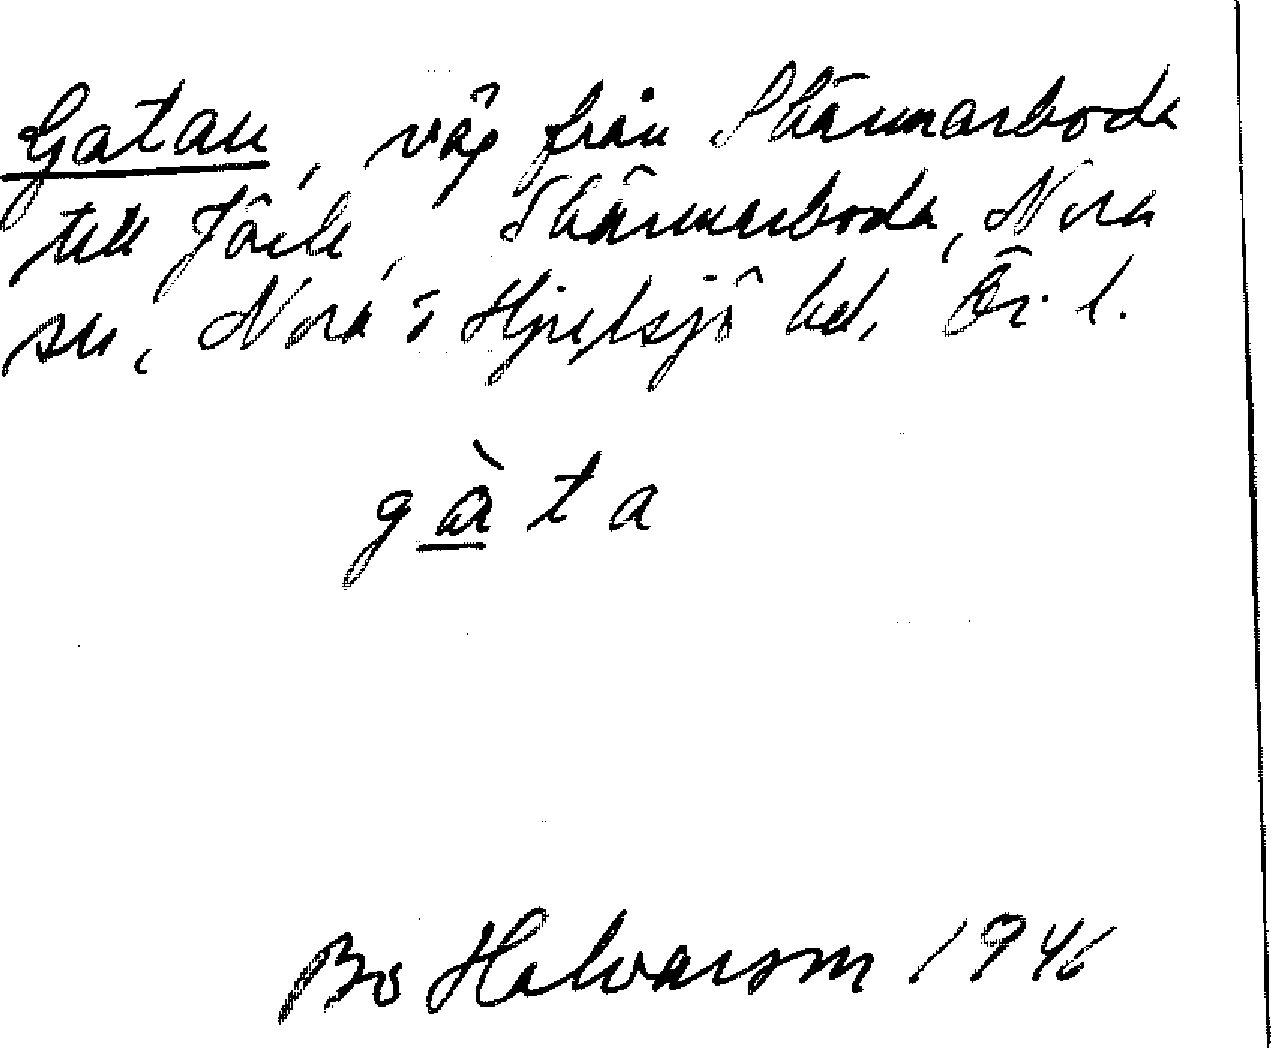 Gatan, väg från Skärmarboda
till Järle, Skärmarboda, Nora
sn, Nora o Hjulsjö hd, Ör. l.
gàta
Bo Halvarson 1946